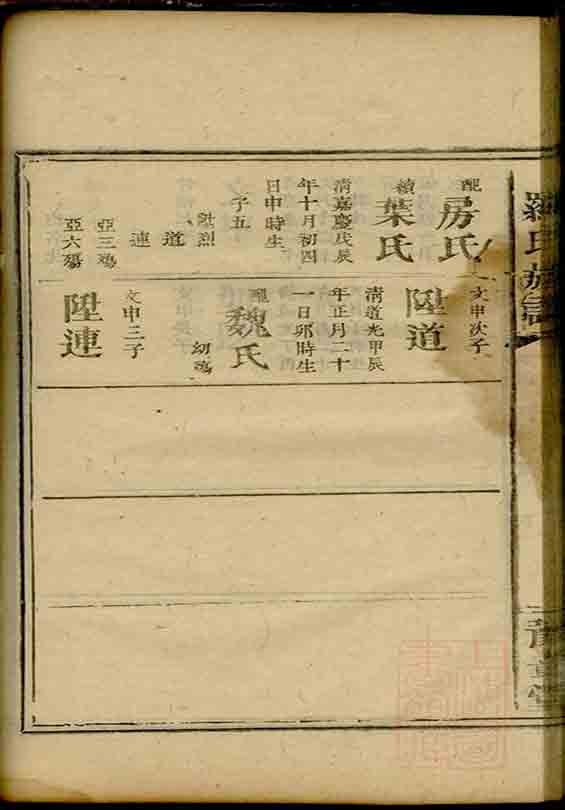 羅氏族譜
配房氏
續葉氏
清嘉慶庚辰
年十月初四
日申時生
子五
陞烈
道
連
亞三殤
亞六殤
文申次子
陞道
清道光甲辰
年正月二十
一日卯時生
配魏氏
幼殤
文申三子
陞連